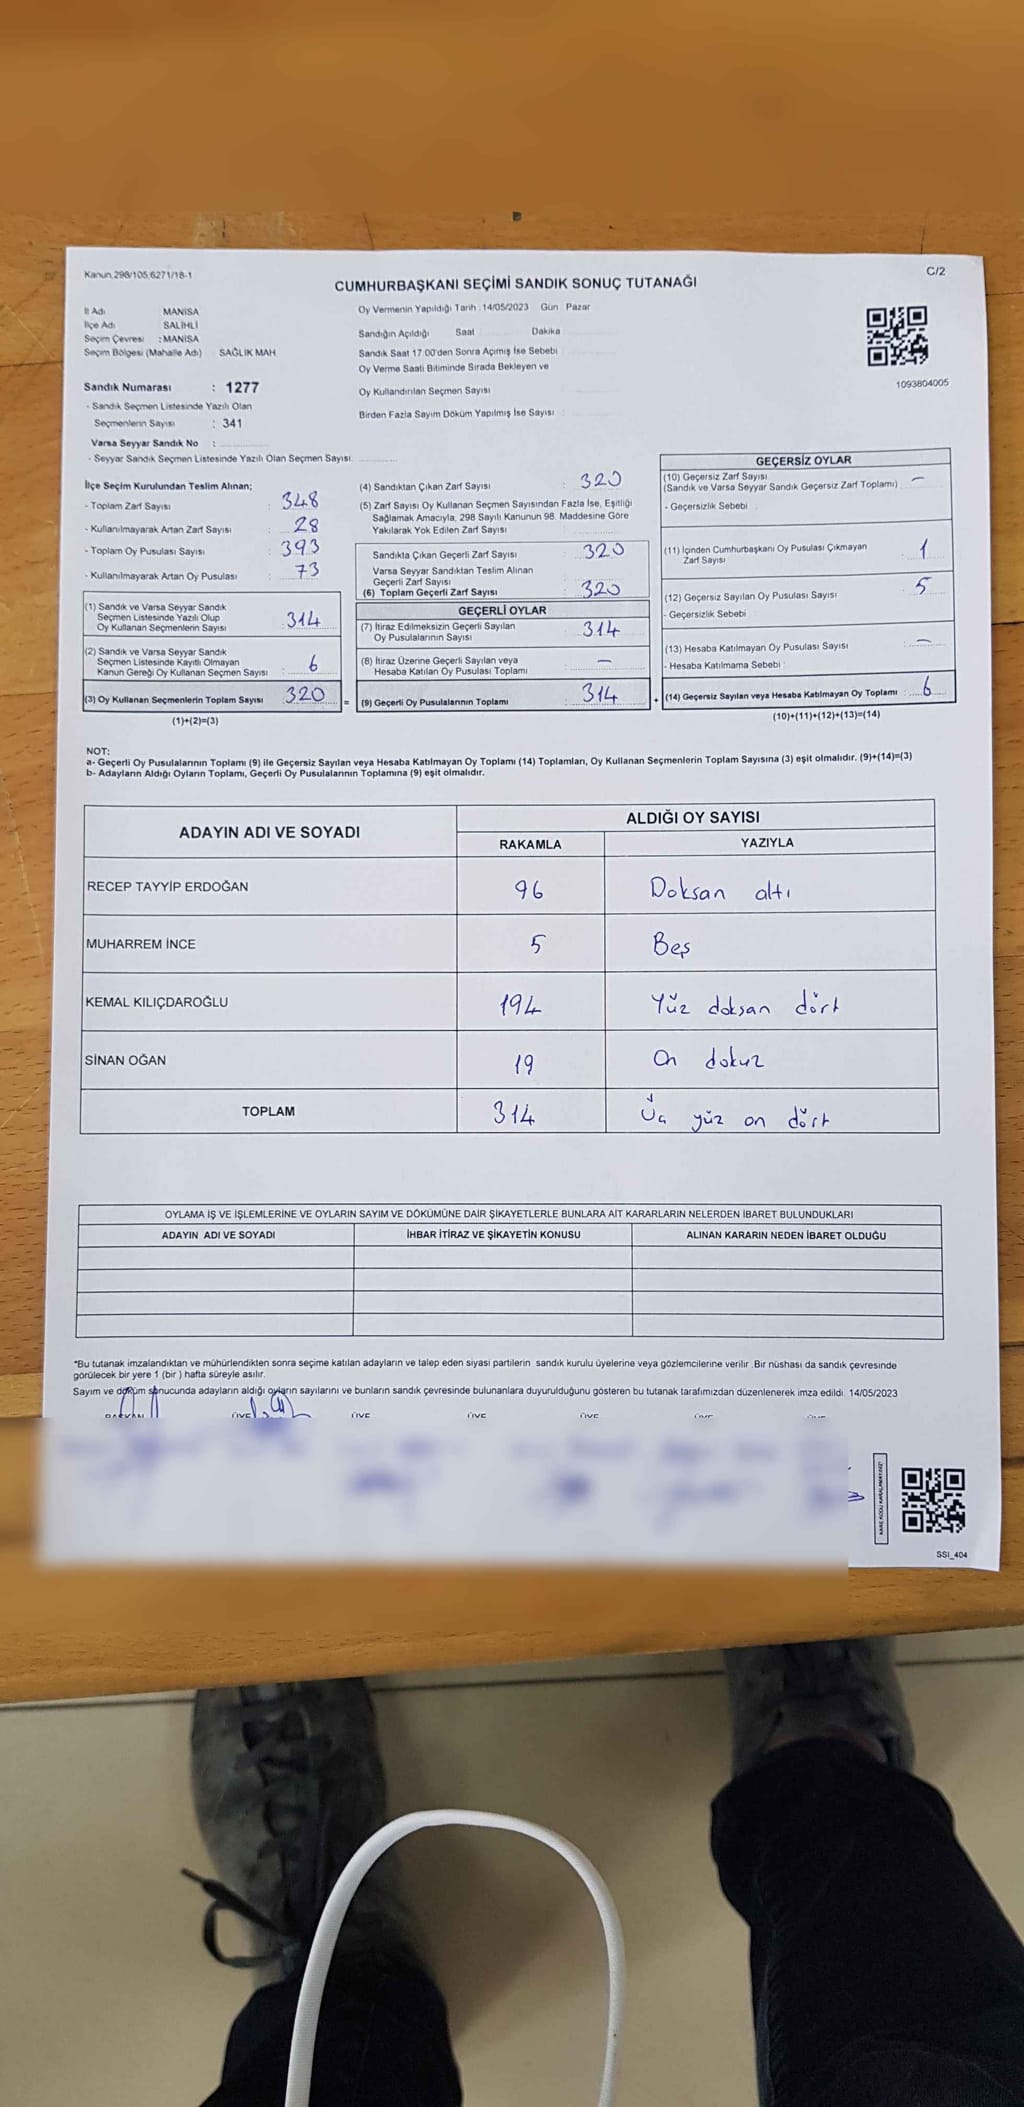 Kanun,298/105,6271/18-1
C/2
CUMHURBAŞKANI SEÇİMİ SANDIK SONUÇ TUTANAĞI
İl Adı MANİSA
İlçe Adı SALİHLİ
Seçim Çevresi : MANİSA
Seçim Bölgesi (Mahalle Adı) SAĞLIK MAH
Sandık Numarası : 1277
- Sandık Seçmen Listesinde Yazılı Olan
Seçmenlerin Sayısı : 341
Varsa Seyyar Sandık No :
- Seyyar Sandık Seçmen Listesinde Yazılı Olan Seçmen Sayısı
Oy Vermenin Yapıldığı Tarih : 14/05/2023 Gün : Pazar
Sandığın Açıldığı Saat Dakika
Sandık Saat 17.00'den Sonra Açımış İse Sebebi
Oy Verme Saati Bitiminde Sırada Bekleyen ve
Oy Kullandırılan Seçmen Sayısı
Birden Fazla Sayım Döküm Yapılmış İse Sayısı :
1093804005
İlçe Seçim Kurulundan Teslim Alınan;
- Toplam Zarf Sayısı : 348
- Kullanılmayarak Artan Zarf Sayısı : 28
- Toplam Oy Pusulası Sayısı : 393
- Kullanılmayarak Artan Oy Pusulası : 73
(1) Sandık ve Varsa Seyyar Sandık
Seçmen Listesinde Yazılı Olup
Oy Kullanan Seçmenlerin Sayısı : 314
(2) Sandık ve Varsa Seyyar Sandık
Seçmen Listesinde Kayıtlı Olmayan
Kanun Gereği Oy Kullanan Seçmen Sayısı : 6
(3) Oy Kullanan Seçmenlerin Toplam Sayısı : 320 =
(1)+(2)=(3)
(4) Sandıktan Çıkan Zarf Sayısı : 320
(5) Zarf Sayısı Oy Kullanan Seçmen Sayısından Fazla İse, Eşitliği
Sağlamak Amacıyla, 298 Sayılı Kanunun 98. Maddesine Göre
Yakılarak Yok Edilen Zarf Sayısı
Sandıkta Çıkan Geçerli Zarf Sayısı : 320
Varsa Seyyar Sandıktan Teslim Alınan
Geçerli Zarf Sayısı
(6) Toplam Geçerli Zarf Sayısı : 320
GEÇERLİ OYLAR
(7) İtiraz Edilmeksizin Geçerli Sayılan
Oy Pusulalarının Sayısı : 314
(8) İtiraz Üzerine Geçerli Sayılan veya
Hesaba Katılan Oy Pusulası Toplamı : -
(9) Geçerli Oy Pusulalarının Toplamı : 314 +
GEÇERSİZ OYLAR
(10) Geçersiz Zarf Sayısı
(Sandık ve Varsa Seyyar Sandık Geçersiz Zarf Toplamı) : -
- Geçersizlik Sebebi :
(11) İçinden Cumhurbaşkanı Oy Pusulası Çıkmayan
Zarf Sayısı : 1
(12) Geçersiz Sayılan Oy Pusulası Sayısı : 5
- Geçersizlik Sebebi :
(13) Hesaba Katılmayan Oy Pusulası Sayısı : -
- Hesaba Katılmama Sebebi :
(14) Geçersiz Sayılan veya Hesaba Katılmayan Oy Toplamı : 6
(10)+(11)+(12)+(13)=(14)
NOT:
a- Geçerli Oy Pusulalarının Toplamı (9) ile Geçersiz Sayılan veya Hesaba Katılmayan Oy Toplamı (14) Toplamları, Oy Kullanan Seçmenlerin Toplam Sayısına (3) eşit olmalıdır. (9)+(14)=(3)
b- Adayların Aldığı Oyların Toplamı, Geçerli Oy Pusulalarının Toplamına (9) eşit olmalıdır.
ADAYIN ADI VE SOYADI
ALDIĞI OY SAYISI
RAKAMLA YAZIYLA
RECEP TAYYİP ERDOĞAN 96 Doksan altı
MUHARREM İNCE 5 Beş
KEMAL KILIÇDAROĞLU 194 Yüz doksan dört
SİNAN OĞAN 19 On dokuz
TOPLAM 314 Üç yüz on dört
OYLAMA İŞ VE İŞLEMLERİNE VE OYLARIN SAYIM VE DÖKÜMÜNE DAİR ŞİKAYETLERLE BUNLARA AİT KARARLARIN NELERDEN İBARET BULUNDUKLARI
ADAYIN ADI VE SOYADI İHBAR İTİRAZ VE ŞİKAYETİN KONUSU ALINAN KARARIN NEDEN İBARET OLDUĞU
*Bu tutanak imzalandıktan ve mühürlendikten sonra seçime katılan adayların ve talep eden siyasi partilerin sandık kurulu üyelerine veya gözlemcilerine verilir .Bir nüshası da sandık çevresinde
görülecek bir yere 1 (bir ) hafta süreyle asılır.
Sayım ve döküm sonucunda adayların aldığı oyların sayılarını ve bunların sandık çevresinde bulunanlara duyurulduğunu gösteren bu tutanak tarafımızdan düzenlenerek imza edildi. 14/05/2023
BAŞKAN ÜYE ÜYE ÜYE ÜYE ÜYE ÜYE
SSI_404